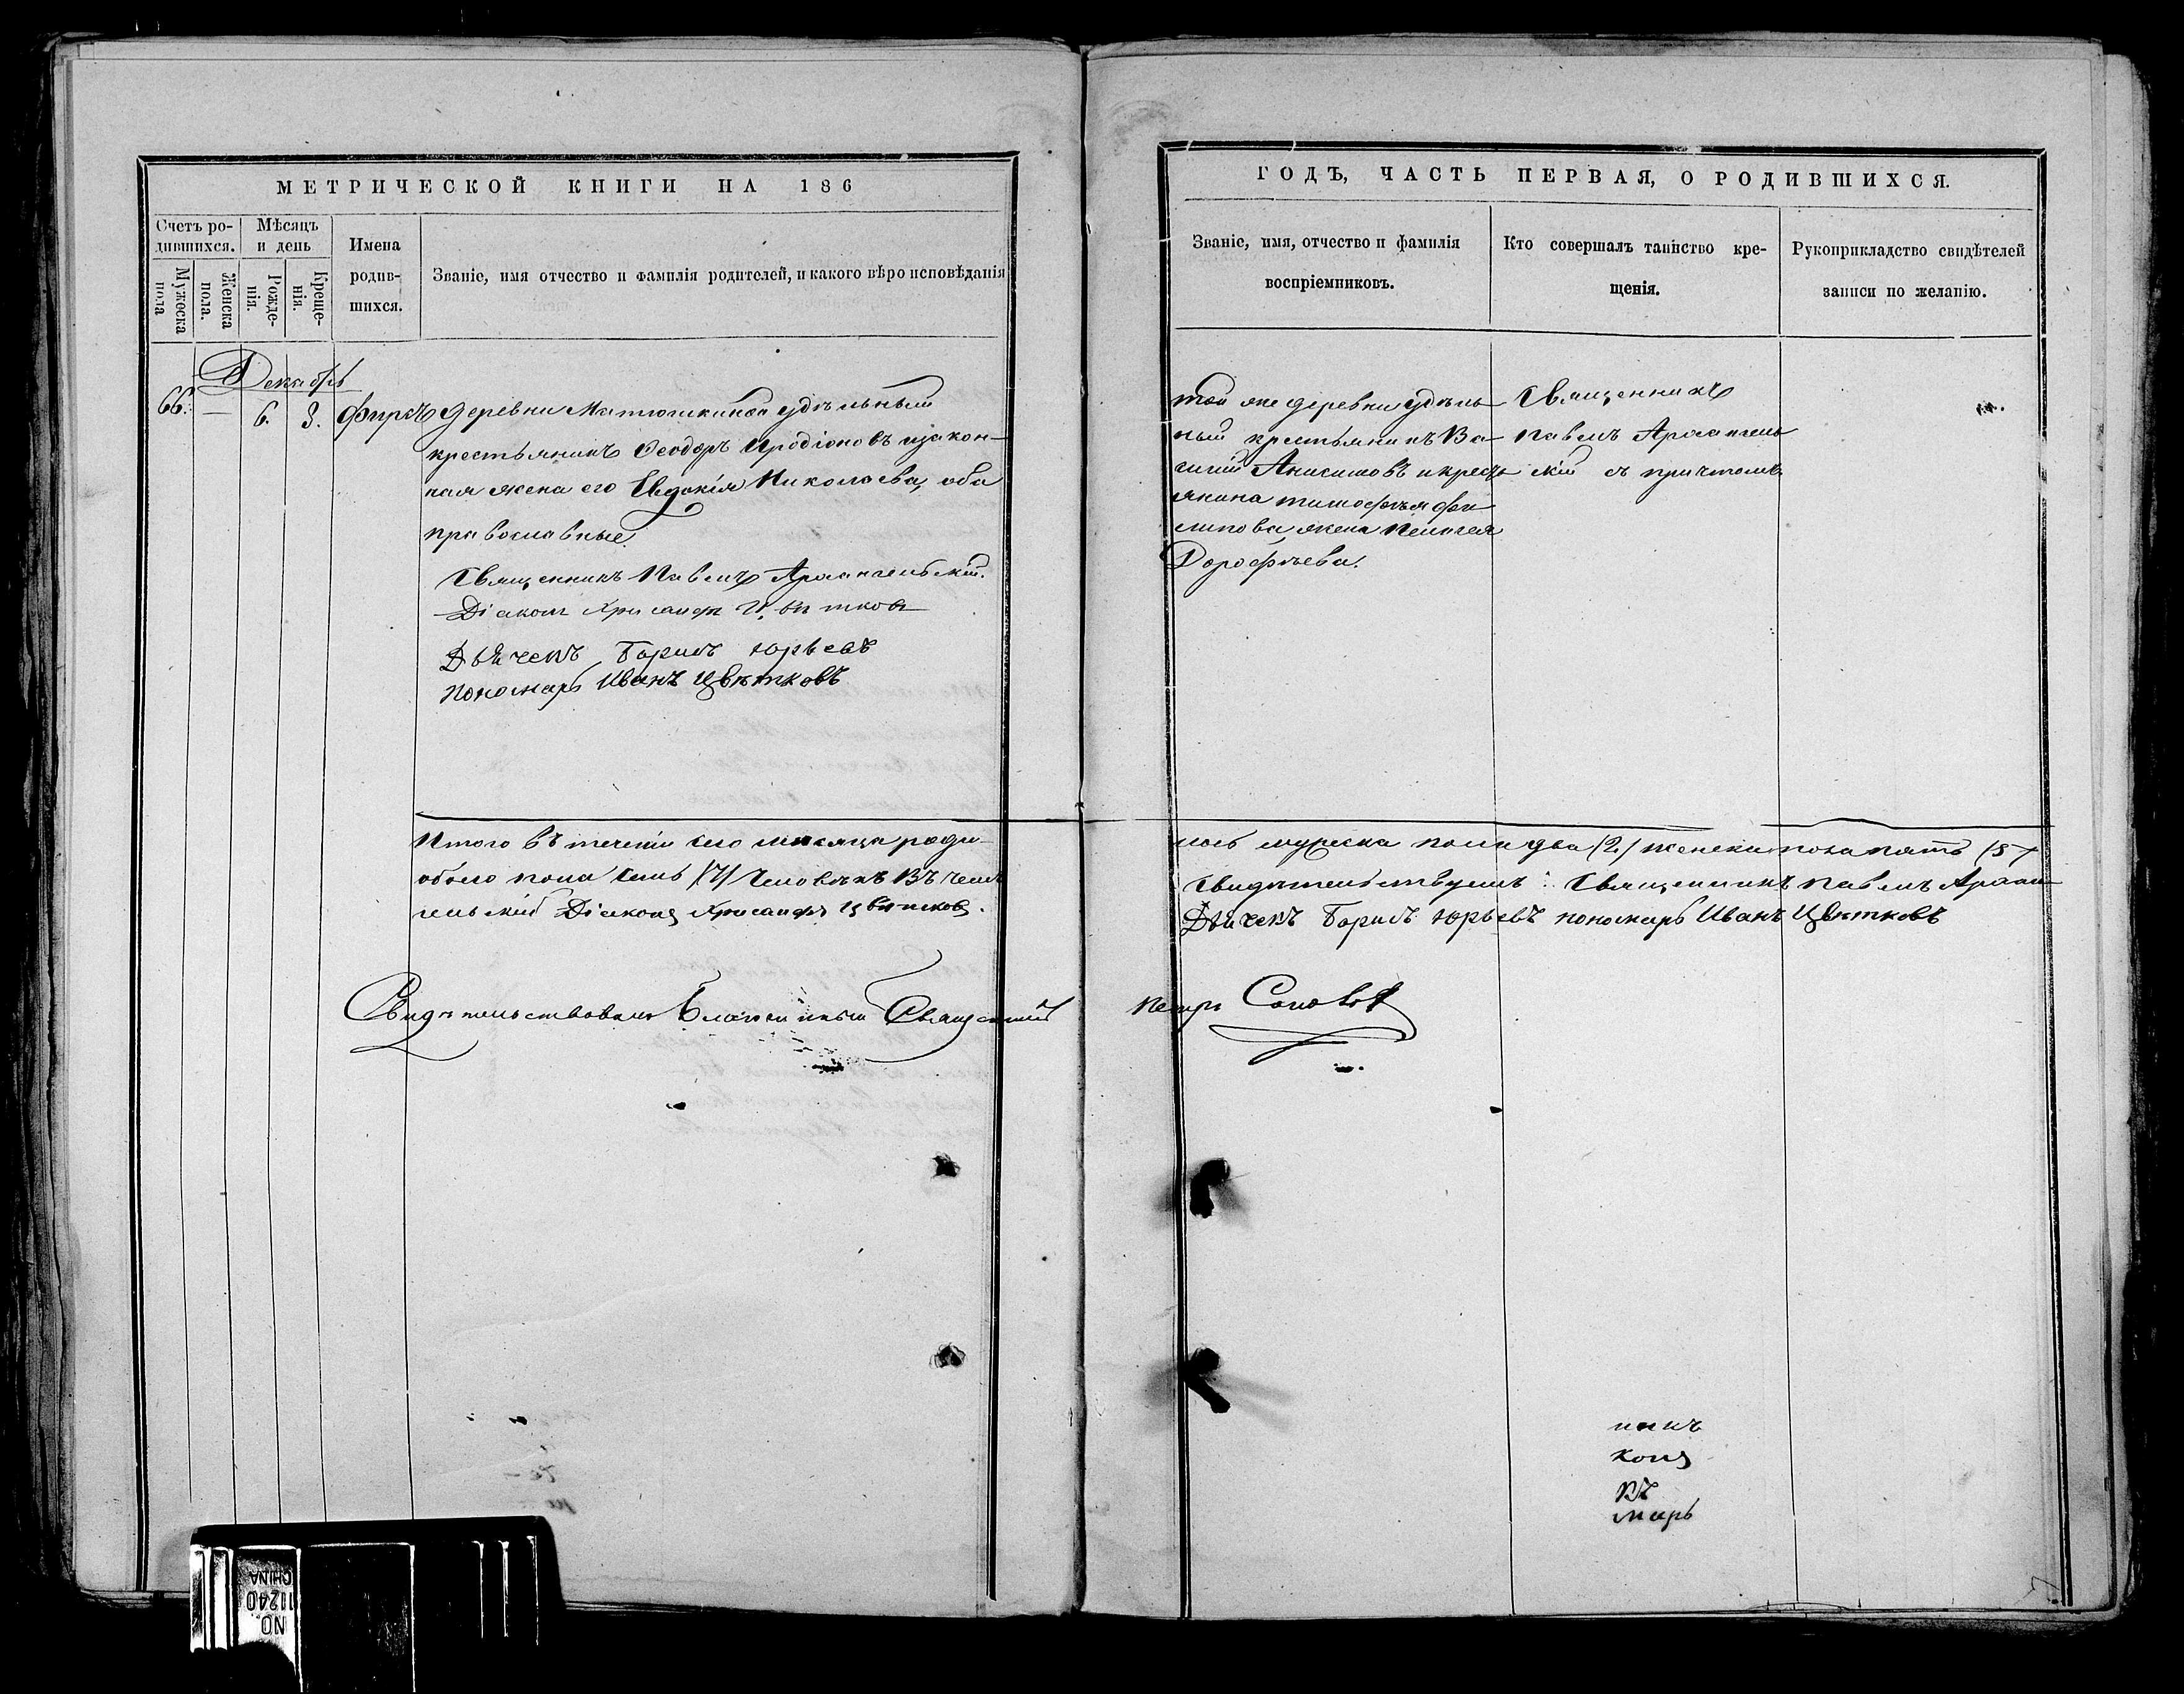 МЕТРИЧЕСКОЙ КНИГИ НА 186
Счетъ ро-
дившихся.
Мѣсяцъ
и день
Имена
родив-
шихся.
Званіе, имя отчество и фамилія родителей, и какого вѣроисповѣданія
Мужеска
пола
Женска
пола.
Рожде-
нія.
Креще-
нія.
Декабрь
66. — 6. 8. Фирсъ
Деревни Матюшкиной удѣльный
крестьянинъ Ѳеодоръ Иродіоновъ и закон-
ная жена его Евдокія Николаева, оба
православные.
Священникъ Павелъ Архангельскій.
Діаконъ Хрисанфъ Цвѣтковъ
Дьячекъ Борисъ Юрьевъ
Пономарь Иванъ Цвѣтковъ
Итого въ теченіи сего мѣсяца роди-
обоего пола семь /7/ человѣкъ Въ чемъ
гельскій Діаконъ Хрисанфъ Цвѣтковъ.
Свидѣтельствовалъ Благочинный Священникъ
NO
11240
CHINA
ГОДЪ, ЧАСТЬ ПЕРВАЯ, О РОДИВШИХСЯ.
Званіе, имя, отчество и фамилія
воспріемниковъ.
Кто совершалъ таинство кре-
щенія.
Рукоприкладство свидѣтелей
записи по желанію.
той же деревни удѣль-
ный крестьянинъ Ва-
силій Анисимовъ и кресть
янина Тимофѣя Фи
липова жена Пелагея
Дорофѣева.
Священникъ
Павелъ Архангель
скій съ причтомъ
лось мужеска пола два /2/ женска пола пять /5/
Свидѣтельствуемъ: Священникъ Павелъ Архан-
Дьячекъ Борисъ Юрьевъ пономарь Иванъ Цвѣтковъ
Петръ Соловьевъ
никъ
конъ
къ
марь